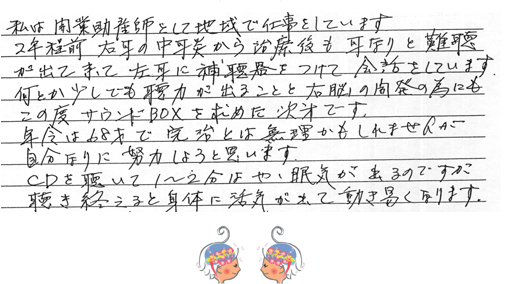 私は開業助産師として地域で仕事をしています
2年程前 右耳の中耳炎から治療後も 耳なりと難聴
が出て来て 左耳に補聴器をつけて 会話をしています。
何とか少しでも聴力が出ることと右脳の開発の為にも
この度 サウンドBOXを求めた次第です。
年令は68才で完治とは無理かもしれませんが
自分なりに努力しようと思います。
CDを聴いて 1〜2分はや、眠気が出るのですが
聴き終えると身体に活気が出て動き易くなります。